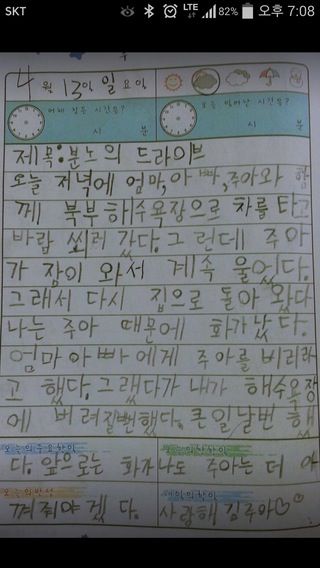 SKT LTE 82% 오후 7:08
4월 13일 일요일
어제 잠든 시간은? 오늘 일어난 시간은?
시 분 시 분
제목:분노의 드라이브
오늘 저녁에 엄마,아빠,주아와 함
께 북부해수욕장으로 차를타고
바람 쐬러 갔다.그런데 주아
가 잠이 와서 계속 울었다.
그래서 다시 집으로 돌아 왔다
나는 주아 때문에 화가났다.
엄마아빠에게 주아를 버리라
고 했다.그랬다가 내가 해수욕장
에 버려질뻔했다.큰일날번 했
오늘의 중요한일 오늘의 착한일
다.앞으로는 화가나도 주아는 더 아
오늘의 반성 내일의 할일
껴줘야겠다. 사랑해 김주아♡